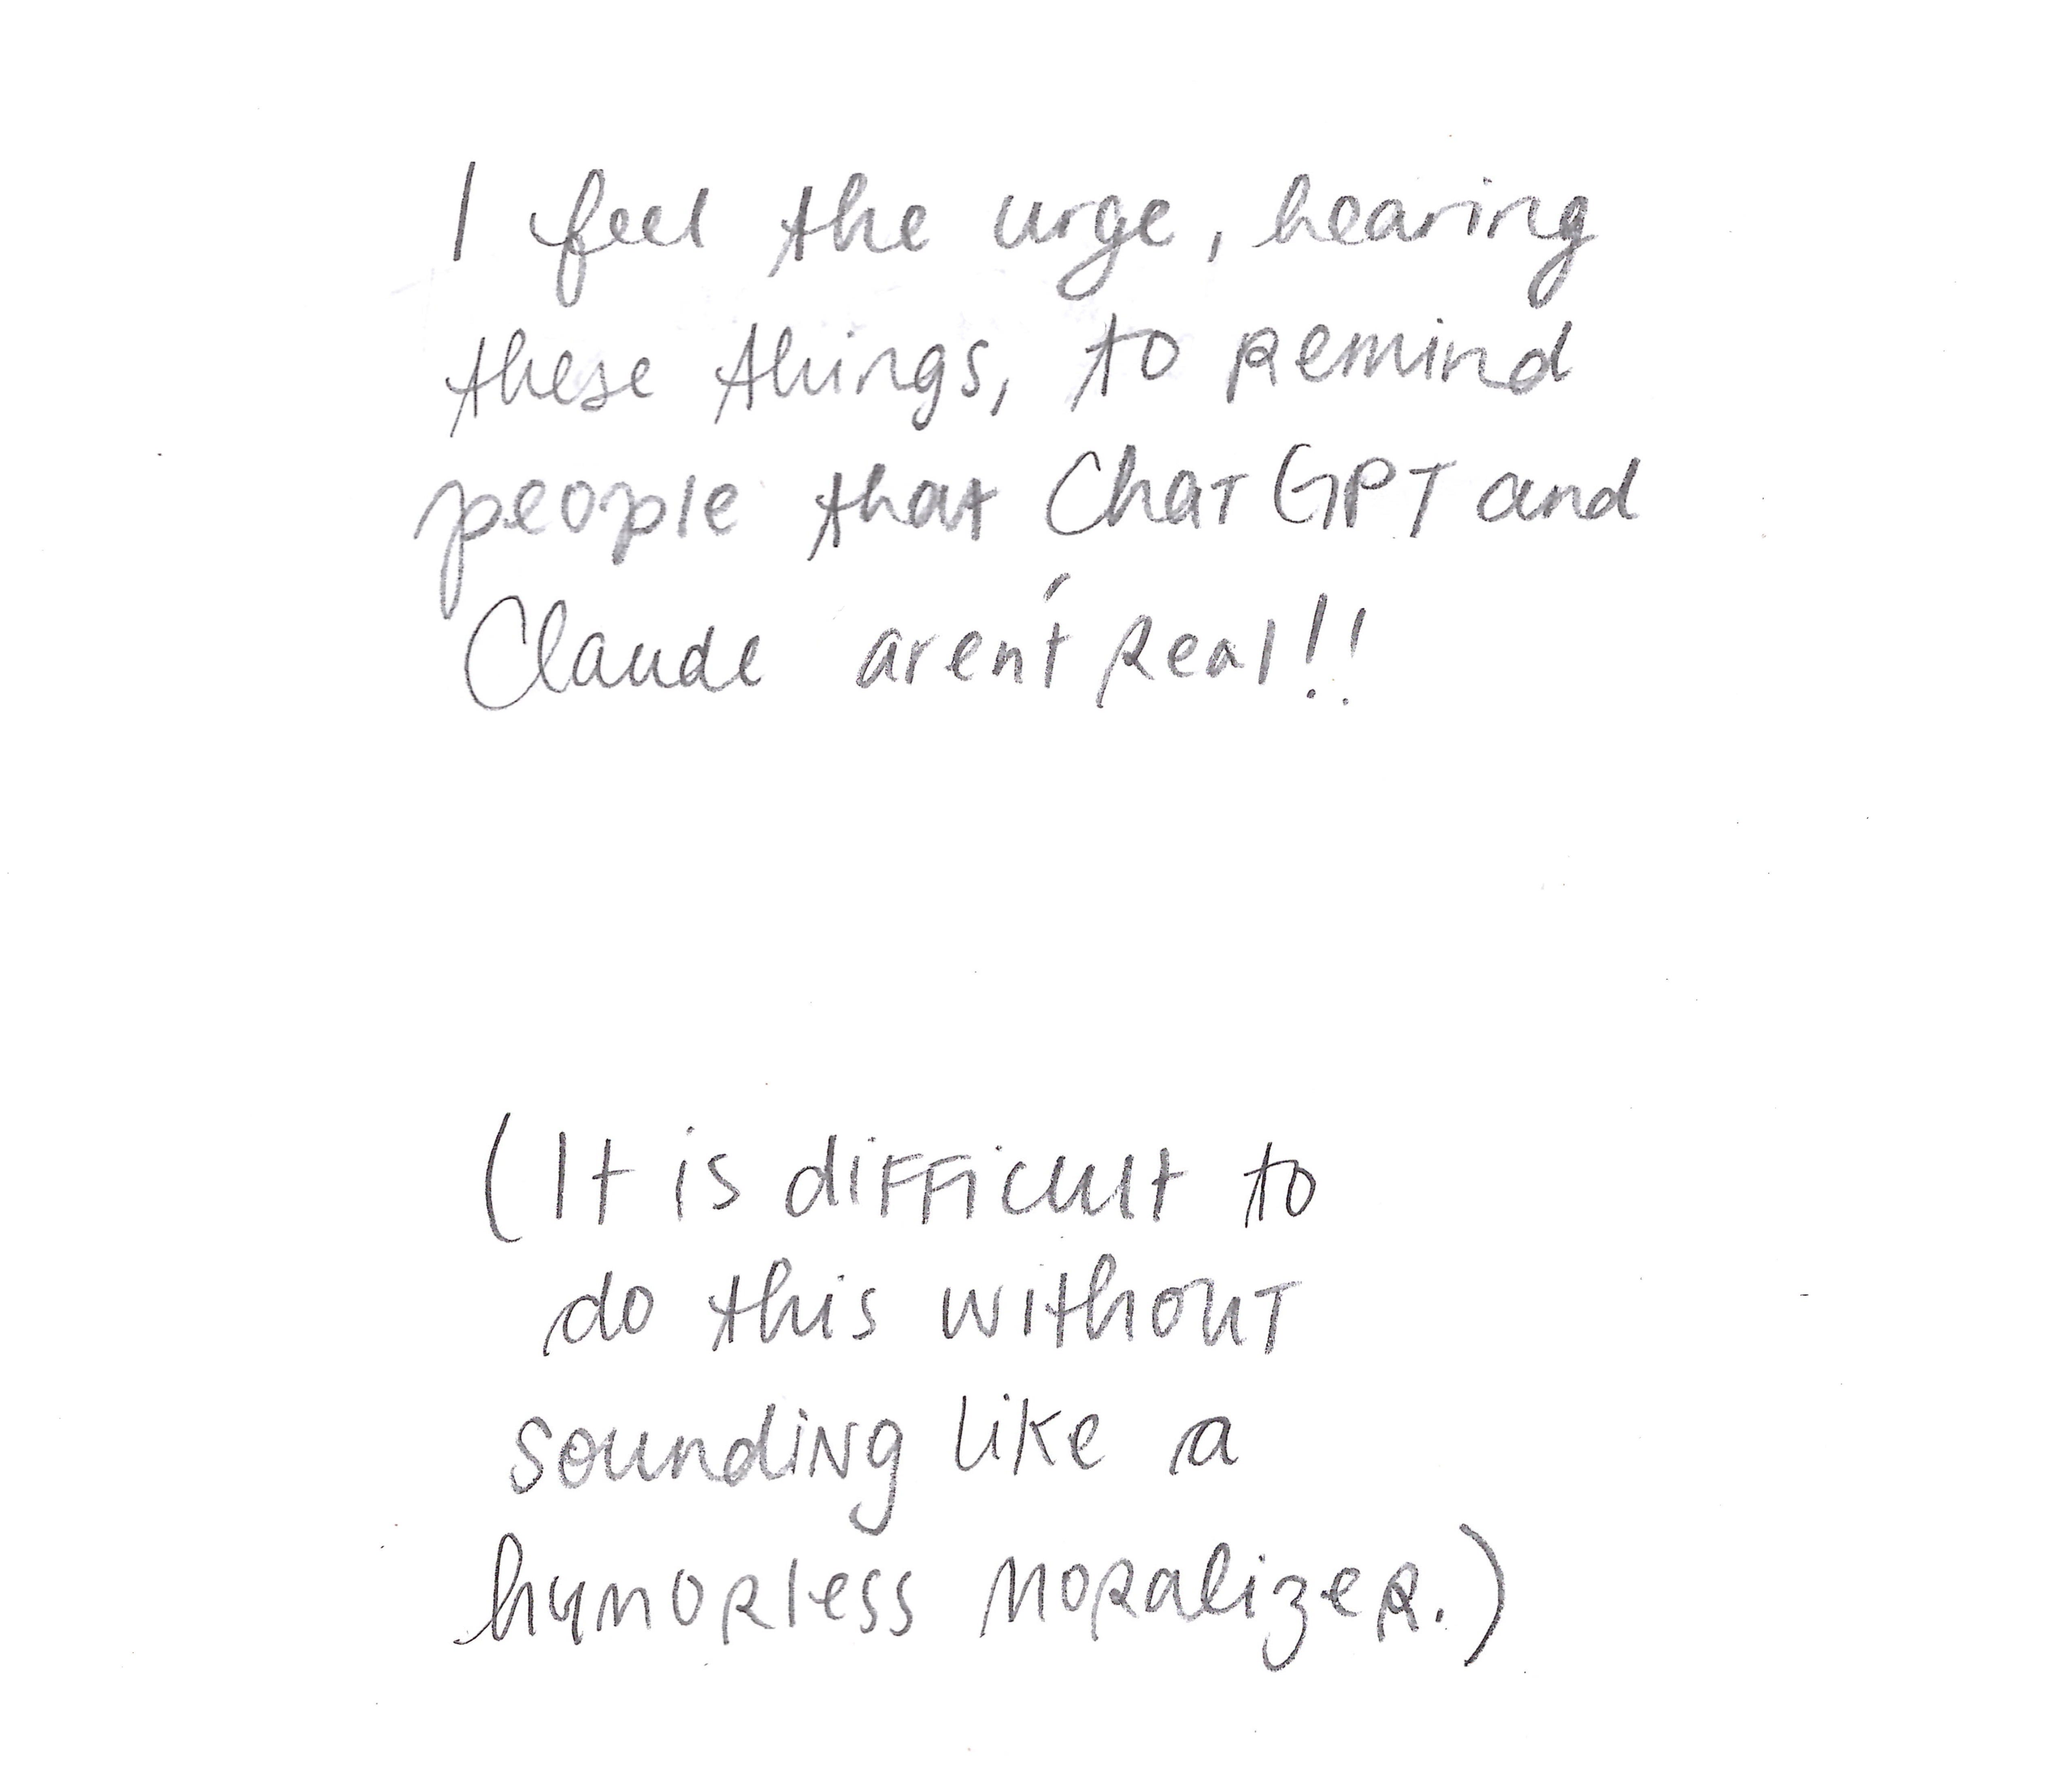 I feel the urge, hearing
these things, to remind
people that ChatGPT and
Claude aren't real!!
(It is difficult to
do this without
sounding like a
humorless moralizer.)